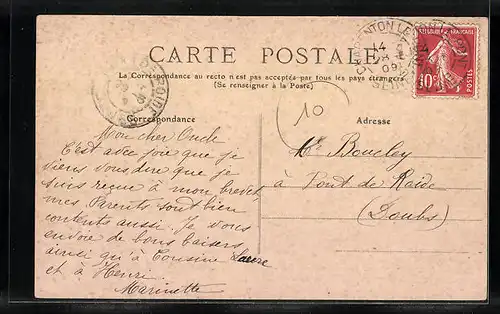 CARTE POSTALE
La Correspondance au recto n'est pas acceptée par tous les pays étrangers
(Se renseigner à la Poste)
Correspondance
Adresse
10
RÉPUBLIQUE FRANÇAISE
10c
POSTES
CHARENTON LE PONT
14
09
SEINE
Mon cher Oncle
C'est avec joie que je
viens vous dire que je
suis reçue à mon brevet,
mes Parents sont bien
contents aussi. Je vous
envoie de bons baisers
ainsi qu'à Cousine Laure
et à Henri.
Marinette
Mr Boucley
à Pont de Roide
(Doubs)